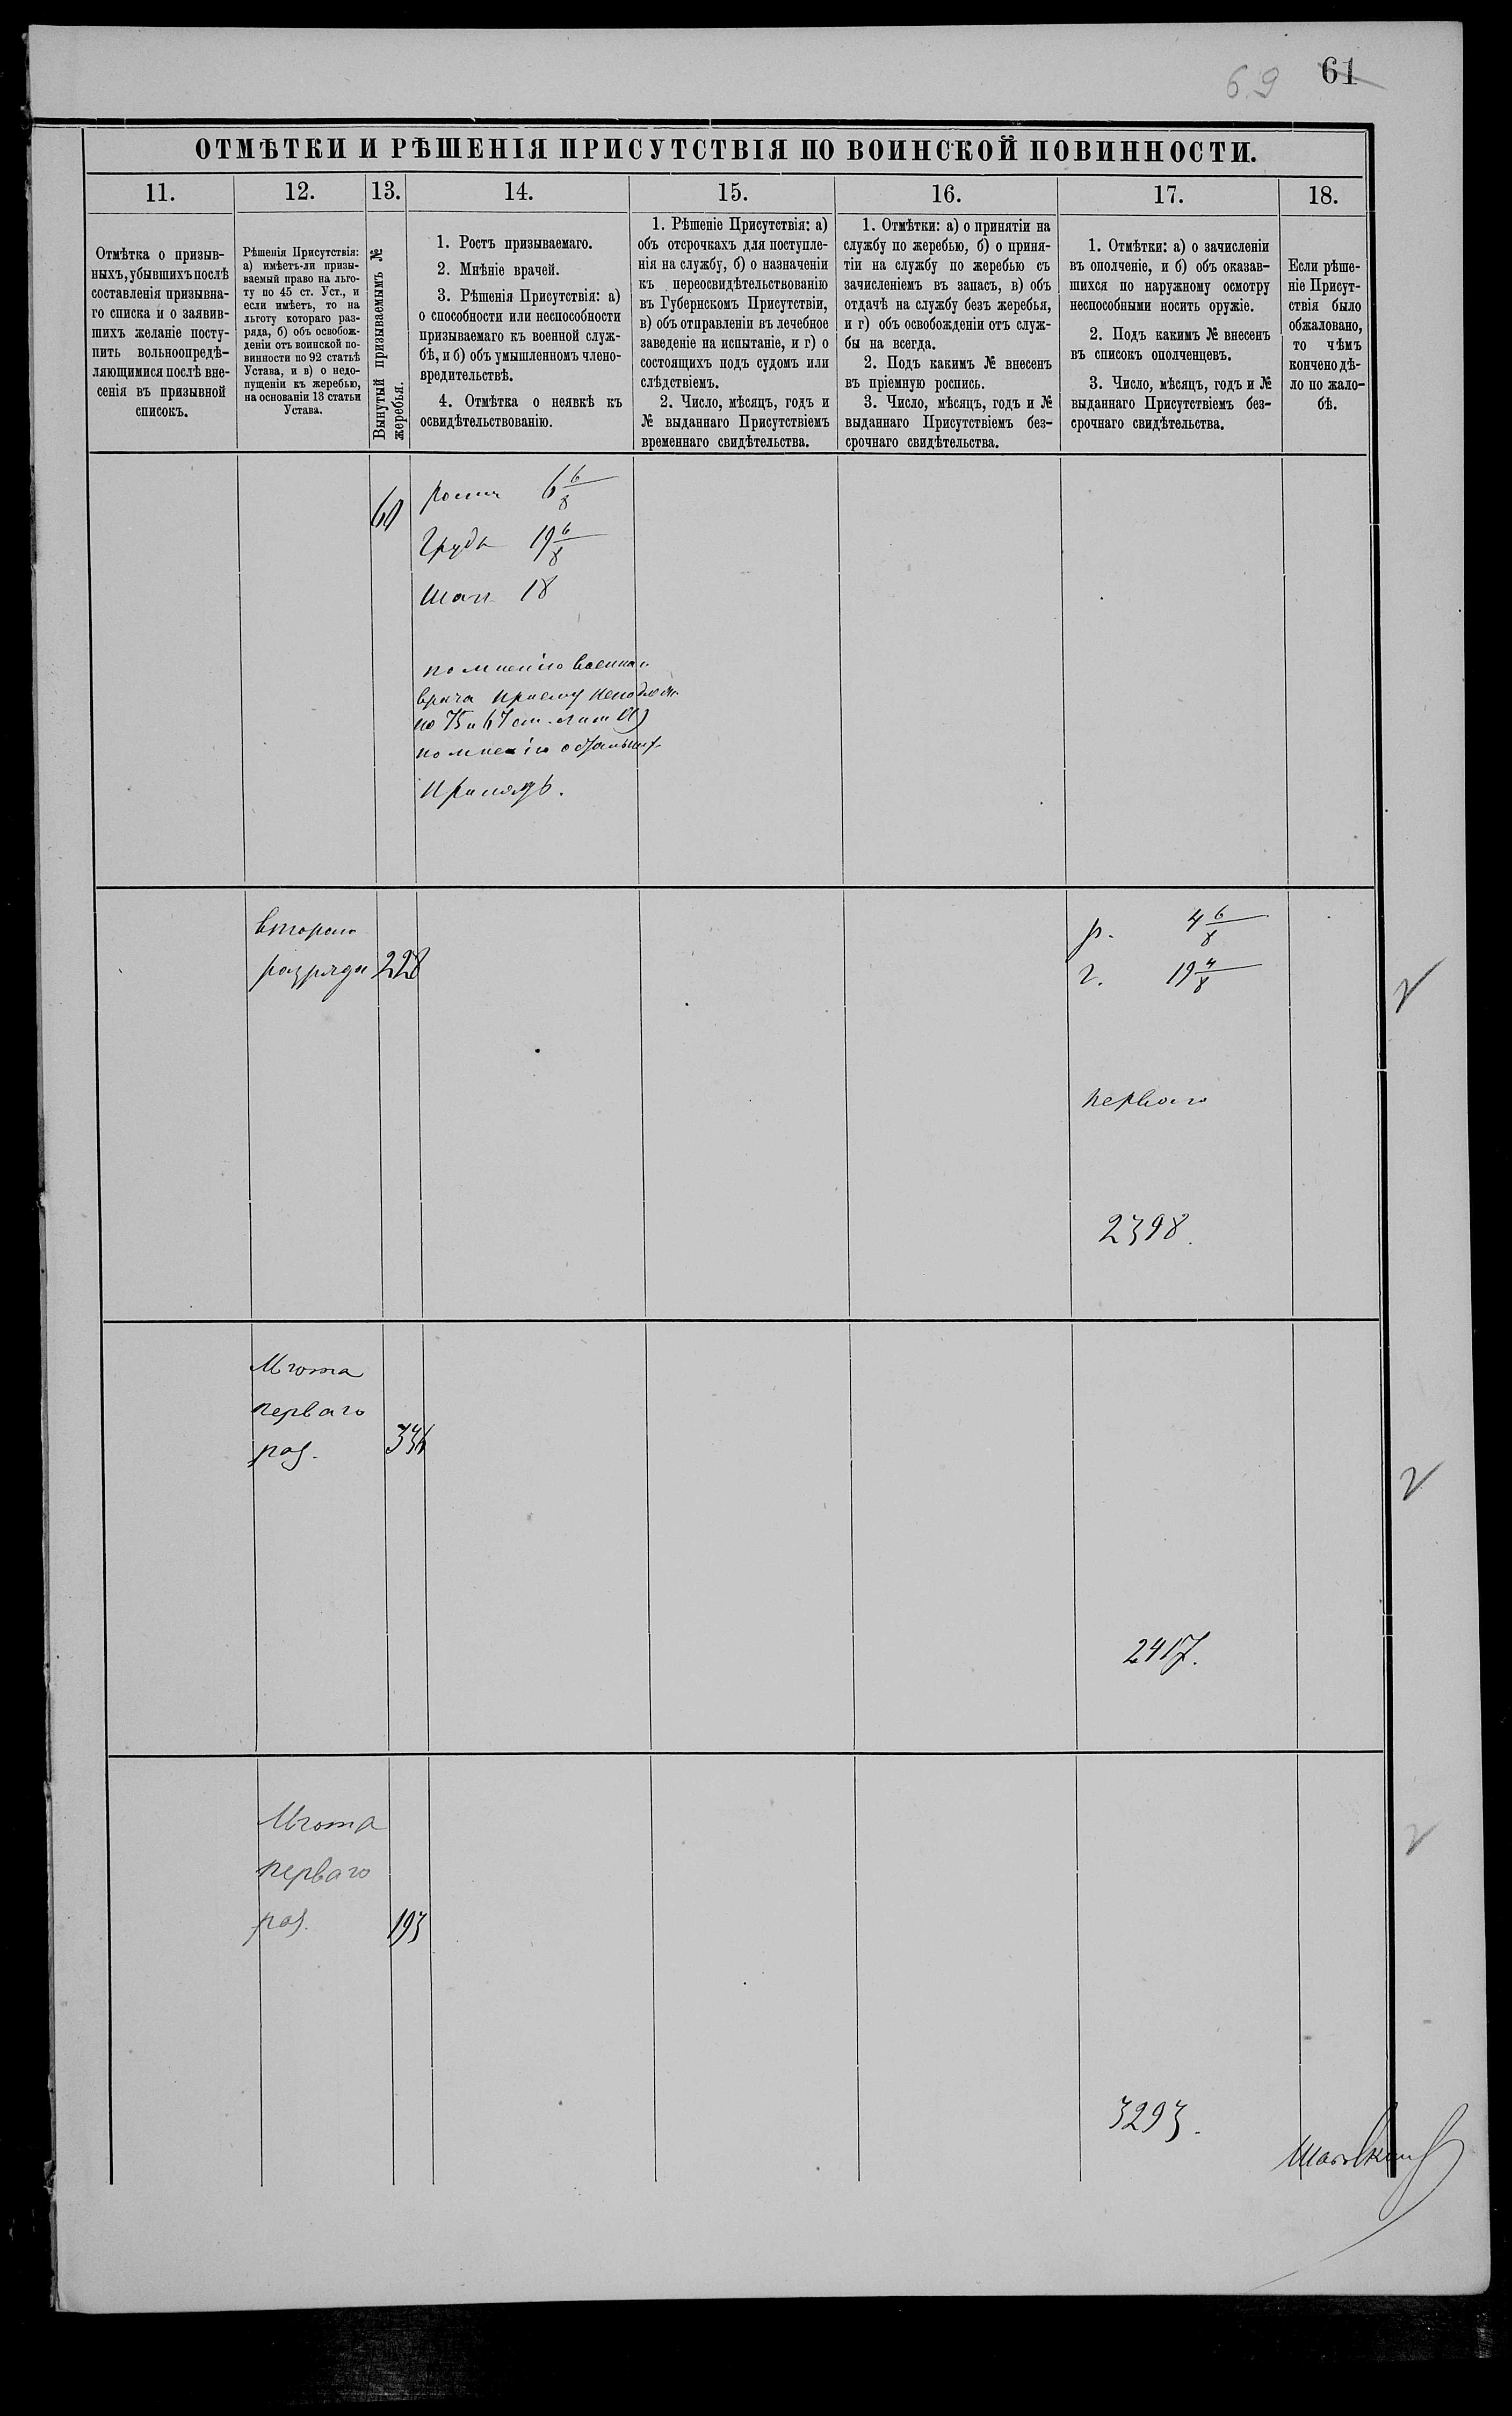 69 61
ОТМѢТКИ И РѢШЕНІЯ ПРИСУТСТВІЯ ПО ВОИНСКОЙ ПОВИННОСТИ.
11.
Отмѣтка о призыв-
ныхъ, убывшихъ послѣ
составленія призывна-
го списка и о заявив-
шихъ желаніе посту-
пить вольноопредѣ-
ляющимися послѣ вне-
сенія въ призывной
списокъ.
12.
Рѣшенія Присутствія:
а) имѣетъ-ли призы-
ваемый право на льго-
ту по 45 ст. Уст., и
если имѣетъ, то на
льготу котораго раз-
ряда, б) объ освобож-
деніи отъ воинской по-
винности по 92 статьѣ
Устава, и в) о недо-
пущеніи къ жеребью,
на основаніи 13 статьи
Устава.
13.
Вынутый призываемымъ №
жеребья.
14.
1. Ростъ призываемаго.
2. Мнѣніе врачей.
3. Рѣшенія Присутствія: а)
о способности или неспособности
призываемаго къ военной служ-
бѣ, и б) объ умышленномъ члено-
вредительствѣ.
4. Отмѣтка о неявкѣ къ
освидѣтельствованію.
15.
1. Рѣшеніе Присутствія: а)
объ отсрочкахъ для поступле-
нія на службу, б) о назначеніи
къ переосвидѣтельствованію
въ Губернскомъ Присутствіи,
в) объ отправленіи въ лечебное
заведеніе на испытаніе, и г) о
состоящихъ подъ судомъ или
слѣдствіемъ.
2. Число, мѣсяцъ, годъ и
№ выданнаго Присутствіемъ
временнаго свидѣтельства.
16.
1. Отмѣтки: а) о принятіи на
службу по жеребью, б) о приня-
тіи на службу по жеребью съ
зачисленіемъ въ запасъ, в) объ
отдачѣ на службу безъ жеребья,
и г) объ освобожденіи отъ служ-
бы на всегда.
2. Подъ какимъ № внесенъ
въ пріемную роспись.
3. Число, мѣсяцъ, годъ и №
выданнаго Присутствіемъ без-
срочнаго свидѣтельства.
17.
1. Отмѣтки: а) о зачисленіи
въ ополченіе, и б) объ оказав-
шихся по наружному осмотру
неспособными носить оружіе.
2. Подъ какимъ № внесенъ
въ списокъ ополченцевъ.
3. Число, мѣсяцъ, годъ и №
выданнаго Присутствіемъ без-
срочнаго свидѣтельства.
18.
Если рѣше-
ніе Присут-
ствія было
обжаловано,
то чѣмъ
кончено дѣ-
ло по жало-
бѣ.
ростъ 6 6/8
Грудь 19 6/8
18
по мнѣнію военнаго
врача пріему неподлеж.
по 75 и 67 ст. лит А)
по мнѣнію остальных
Принять.
втораго
разряда 228
р. 4 6/8
г. 19 4/8
перваго
2398.
Льгота
перваго
раз. 336
2417.
Льгота
перваго
раз. 193
3293.